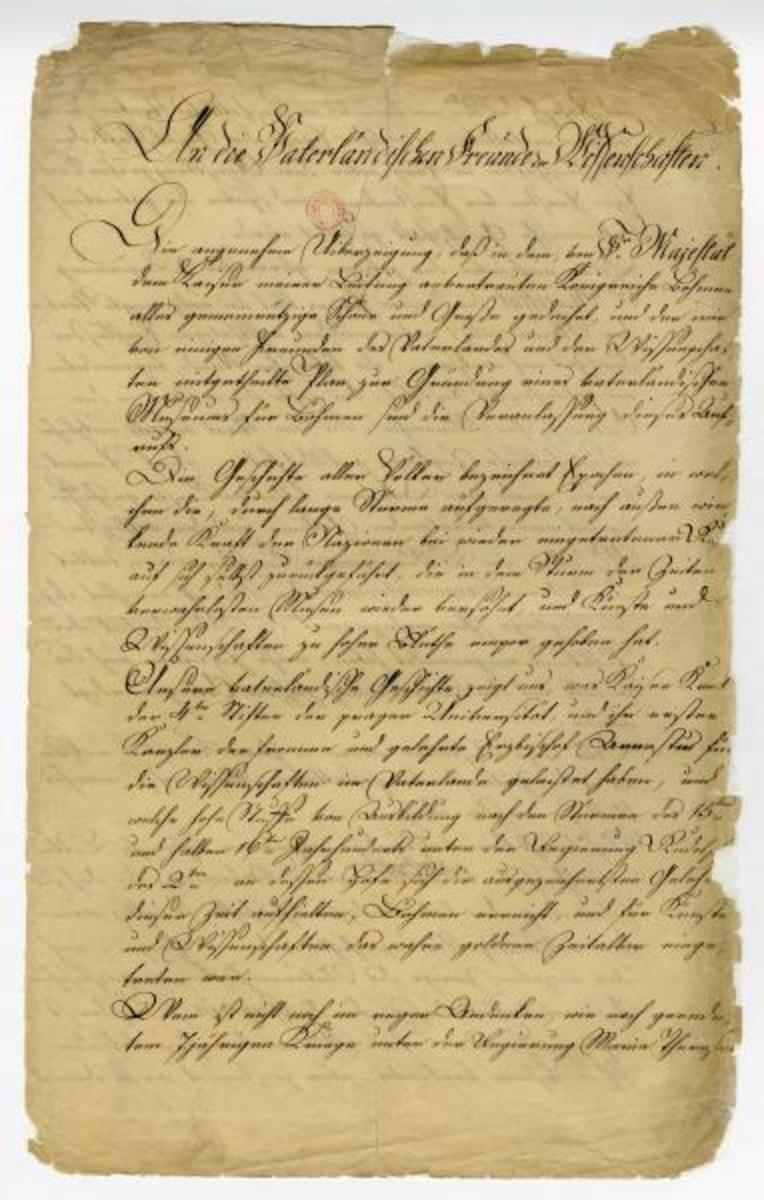 An die Vaterländischen Freunde der Wissenschaften.
Die angenehme Ueberzeugung, daß in dem, von Sr. Majestät
dem Kaiser meiner Leitung anvertrauten Königreiche Böhmen
alles gemeinnützige Schöne und Große gedeihet, und der mir
von einigen Freunden des Vaterlandes und der Wissenschaf-
ten mitgetheilte Plan zur Gründung eines vaterländischen
Museums für Böhmen sind die Veranlassung dieses Auf-
rufs.
Die Geschichte aller Völker bezeichnet Epochen, in wel-
chen die, durch lange Stürme aufgeregte, nach außen wir-
kende Kraft der Nazionen bei wieder eingetretener
auf sich selbst zurückgeführt, die in dem Sturm der Zeiten
verwahrlosten Musen wieder versöhnt und Künste und
Wissenschaften zu hoher Blüthe empor gehoben hat.
Unsere vaterländische Geschichte zeigt uns, was Kaiser Karl
der 4te Stifter der prager Universität, und ihr erster
Kanzler der fromme und gelehrte Erzbischof Arnestus für
die Wissenschaften im Vaterlande geleistet haben, und
welche hohe Stuffe von Ausbildung nach den Stürmen des 15ten
und halben 16ten Jahrhunderts unter der Regierung Rudolf
des 2ten an dessen Hofe sich die ausgezeichnetsten Geleh
dieser Zeit aufhielten, Böhmen erreicht, und für Künste
und Wissenschaften das wahre goldene Zeitalter einge-
treten war.
Wem ist nicht noch im regen Andenken, wie nach geende-
tem 7jährigen Kriege unter der Regierung Maria Theresia